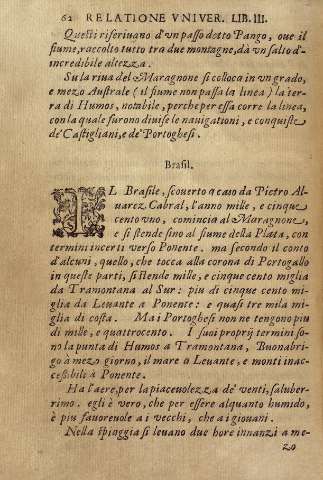 62 RELATIONE VNIVER. LIB. III.
Questi riferiuano d'vn passo detto Pango, oue il
fiume, raccolto tutto tra due montagne, dà vn salto d'-
incredibile altezza.
Su la riua del Maragnone si colloca in vn grado,
e mezo Australe (il fiume non passa la linea) la ter-
ra di Humos, notabile, perche per essa corre la linea,
con la quale furono diuise le nauigationi, e conquiste
de' Castigliani, e de' Portoghesi.
Brasil.
IL Brasile, scouerto a caso da Pietro Al-
uarez Cabral, l'anno mille, e cinque
cento vno, comincia al Maragnone,
e si stende sino al fiume della Plata, con
termini incerti verso Ponente. ma secondo il conto
d'alcuni, quello, che tocca alla corona di Portogallo
in queste parti, si stende mille, e cinque cento miglia
da Tramontana al Sur: piu di cinque cento mi-
glia da Leuante a Ponente: e quasi tre mila mi-
glia di costa. Ma i Portoghesi non ne tengono piu
di mille, e quattrocento. I suoi proprij termini so-
no la punta di Humos a Tramontana, Buonabri-
go à mezo giorno, il mare a Leuante, e monti inac-
cessibili à Ponente.
Ha l'aere, per la piaceuolezza de' venti, saluber-
rimo. egli è vero, che per essere alquanto humido,
è piu fauoreuole a i vecchi, che a i giouani.
Nella spiaggia si leuano due hore innanzi a me-
zo